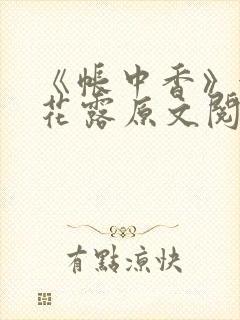 《帐中香》
花露原文阅
有點涼快